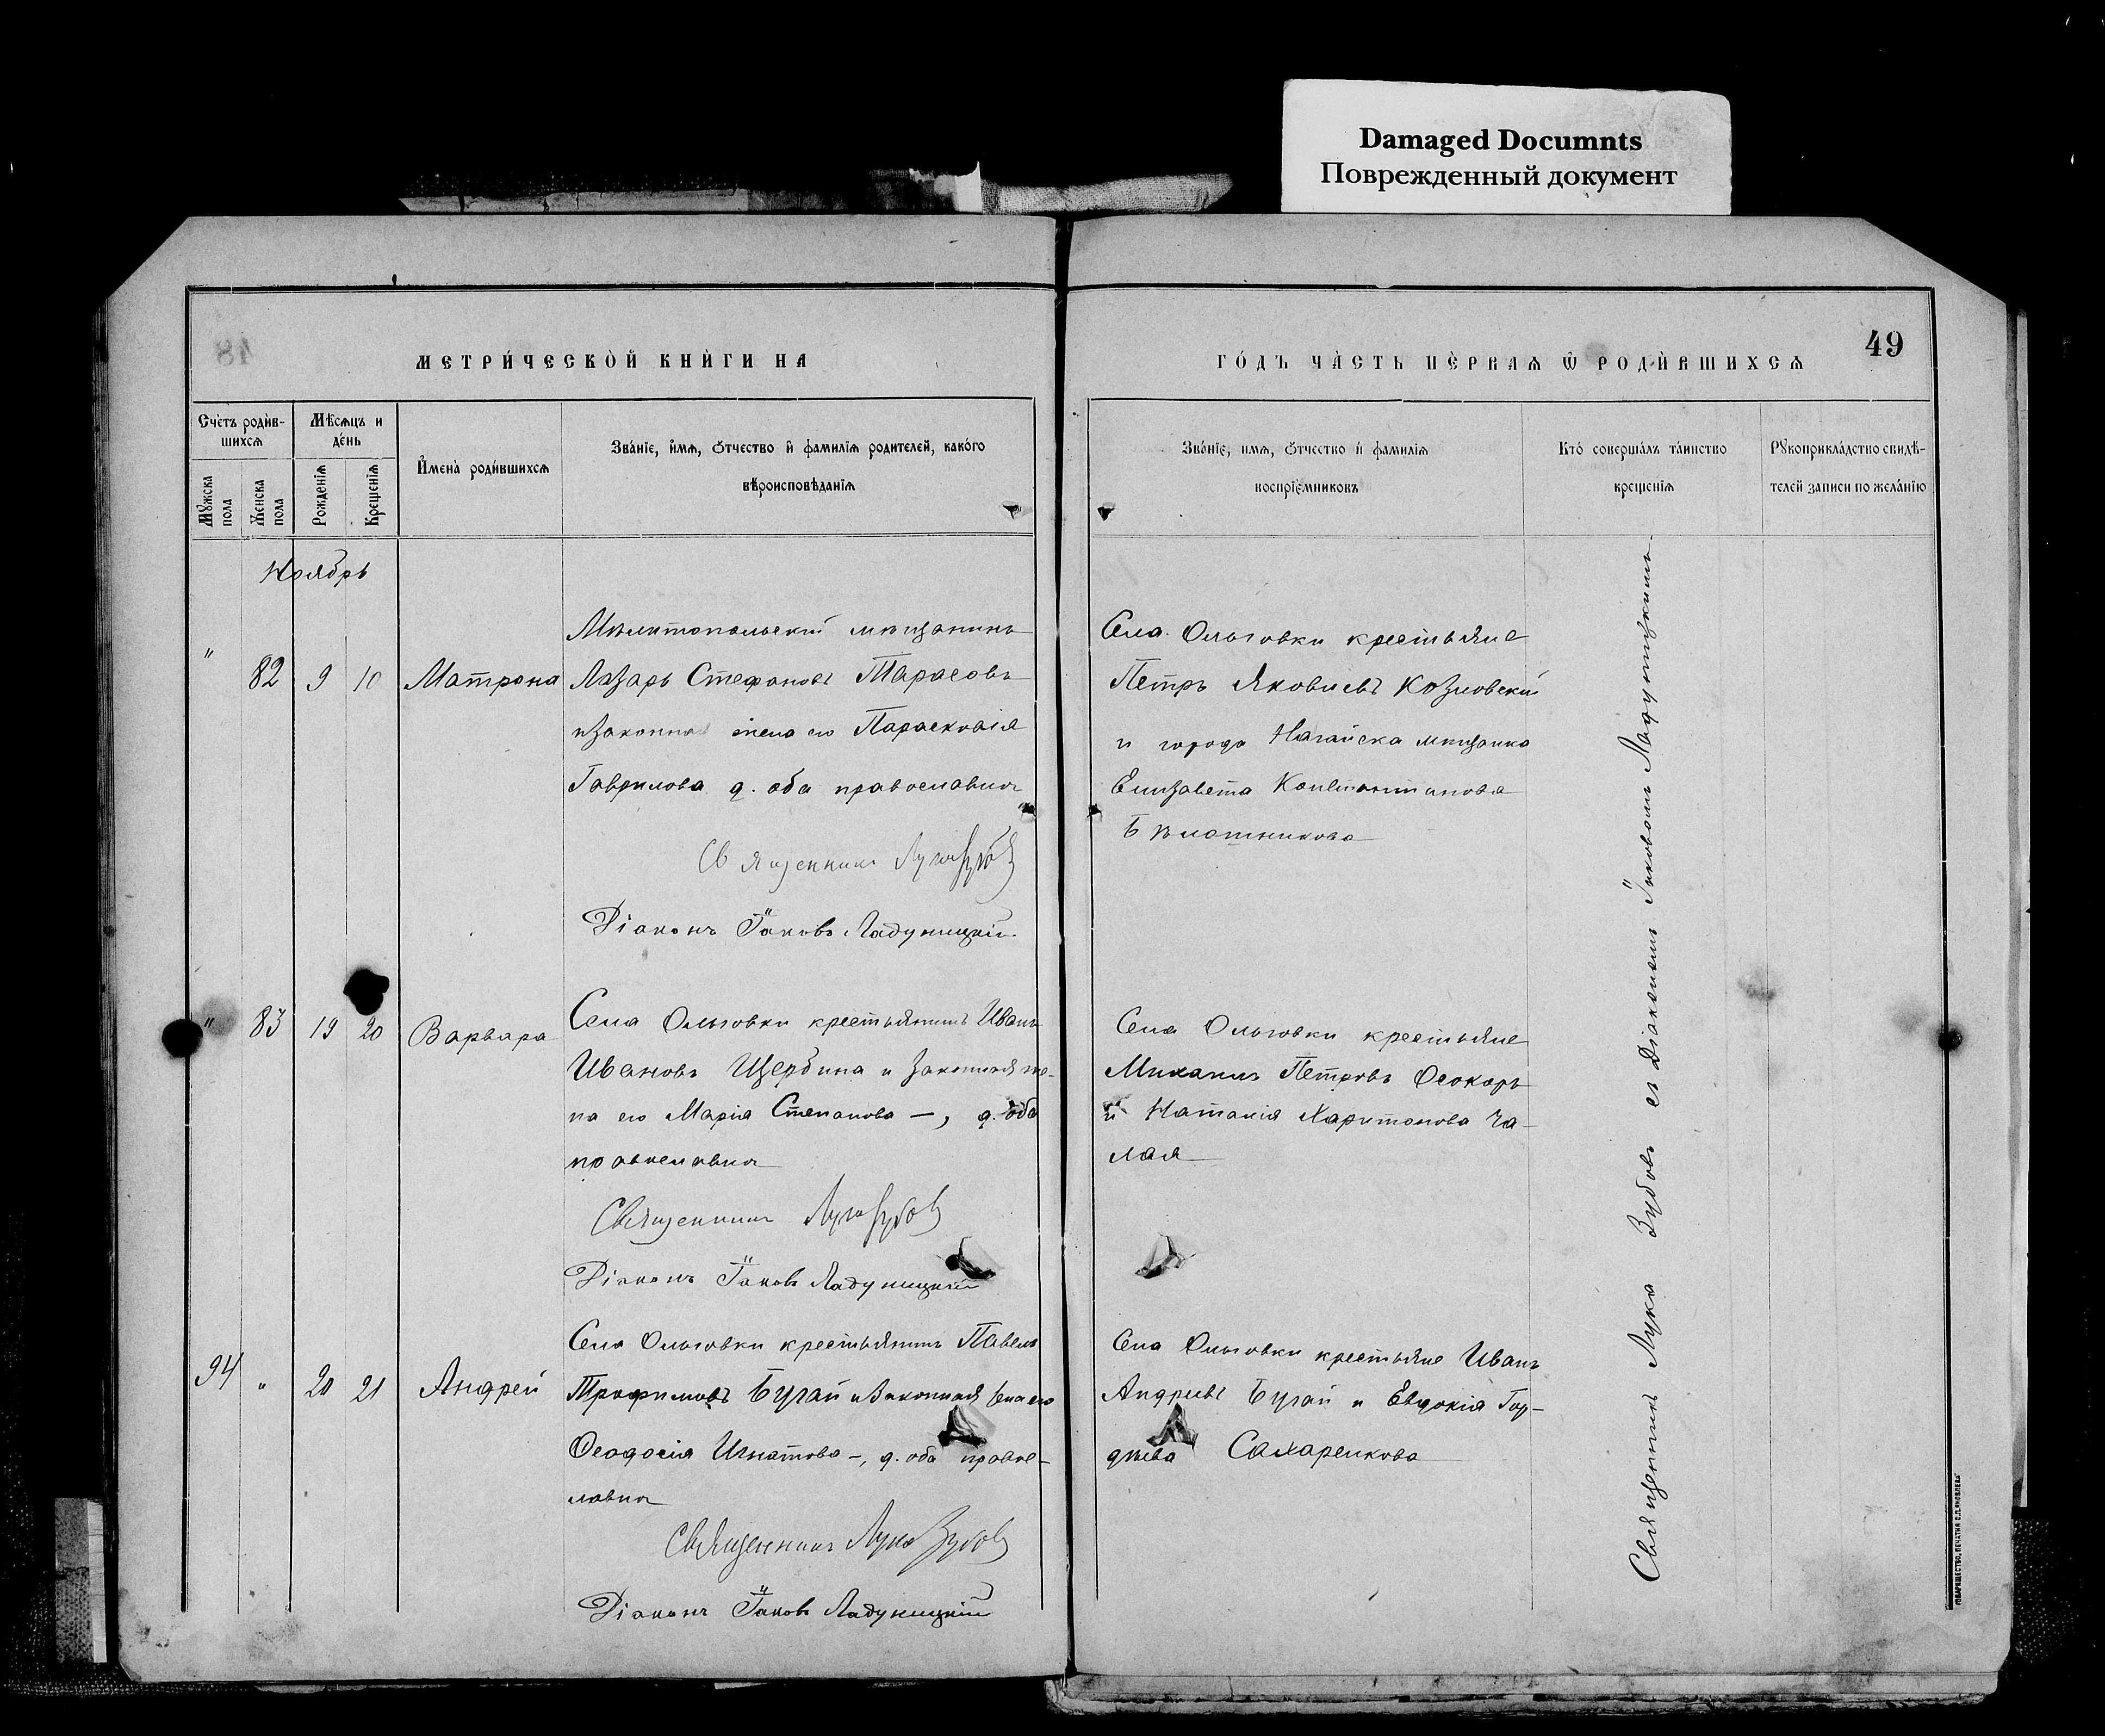 Damaged Documnts
Поврежденный документ
49
МЕТРИ́ЧЕСКОЙ КНИ́ГИ НА
ГО́ДЪ ЧА́СТЬ ПЕ́РВАѦ Ѡ РОДИ́ВШИХСѦ
Сче́тъ роди́в-
шихсѧ
Мѣ́сѧцъ и
де́нь
Мꙋжска
пола
Женска
пола
Рожденїѧ
Крещенїѧ
Имена̀ роди́вшихсѧ
Зва́нїе, и́мѧ, ѻтчество и фамилїѧ родителей, како́го
вѣроисповѣданїѧ
Зва́нїе, и́мѧ, ѻтчество и фамилїѧ
воспрїе́мниковъ
Кто́ соверша́лъ та́инство
креще́нїѧ
Рꙋкоприкла́дство свидѣ-
телей записи по жела́нїю
Ноябрь
" 82 9 10 Матрона
Мелитопольскій мѣщанинъ
Лазарь Стефановъ Тарасовъ
и законна жена его Парасковія
Гаврилова д. оба православны
Священникъ Лука Зубовъ
Діаконъ Іаковъ Ладуницкій
Села Ольговки крестьяне
Петръ Яковлевъ Козловскій
и города Нагайска мѣщанка
Елизавета Константинова
" 83 19 20 Варвара
Села Ольговки крестьянинъ Иванъ
Ивановъ Щербина и законная же-
на его Марія Степанова —, д. оба
православны
Священникъ Лука Зубовъ
Діаконъ Іаковъ Ладуницкій
Села Ольговки крестьяне
Михаилъ Петровъ Осокоръ
и Наталія Харитонова Ча-
лая
94 " 20 21 Андрей
Села Ольговки крестьянинъ Павелъ
Трофимовъ Бугай и законная жена его
Ѳеодосія Игнатова —, д. оба правос-
лавны
Священникъ Лука Зубовъ
Діаконъ Іаковъ Ладуницкій
Села Ольговки крестьяне Иванъ
Андреевъ Бугай и Евдокія Гор-
дѣева Сахаренкова
Священникъ Лука Зубовъ съ Діакономъ Іаковомъ Ладуницкимъ